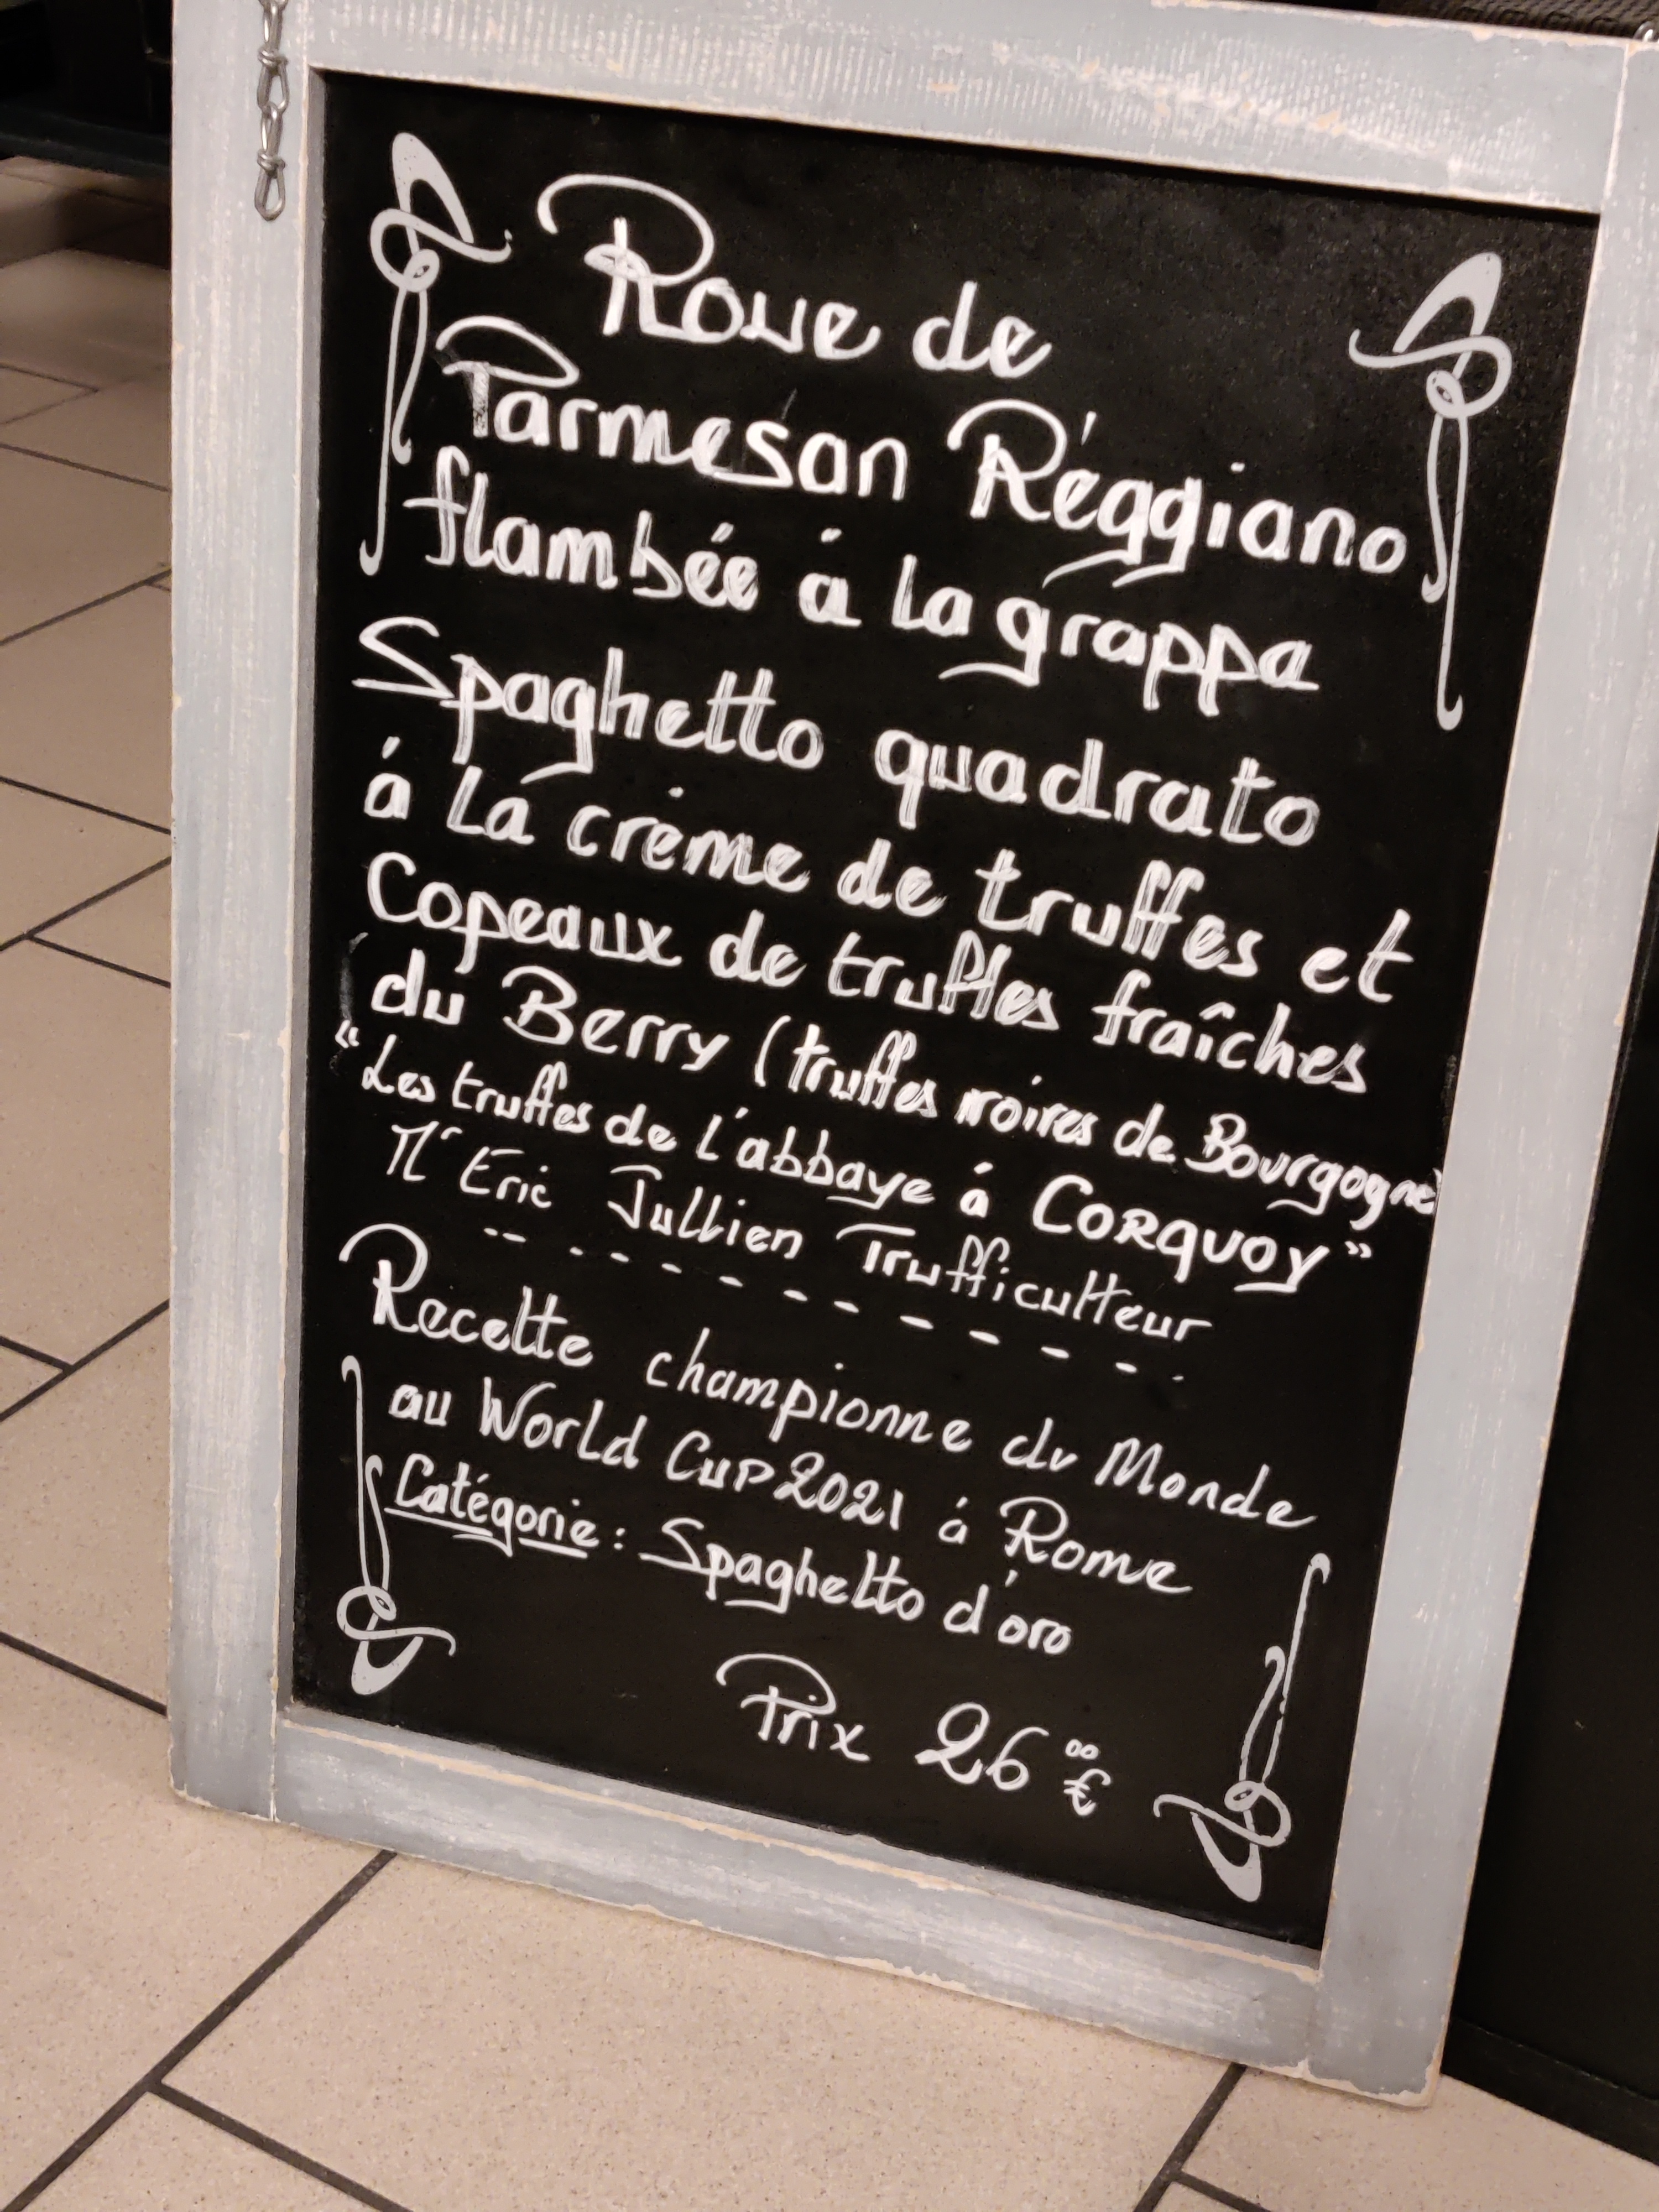 Roue de
Parmesan Réggiano
flambée à la grappa
Spaghetto quadrato
à la crème de truffes et
Copeaux de truffes fraîches
du Berry (truffes noires de Bourgogne)
"Les truffes de l'abbaye à CORQUOY"
Mr Eric Jullien Trufficulteur
Recette championne du Monde
au World Cup 2021 à Rome
Catégorie : Spaghetto d'oro
Prix 26 00 €